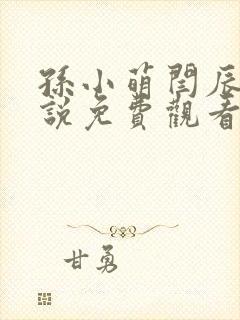 孫小萌閆辰
說免費觀看
甘勇